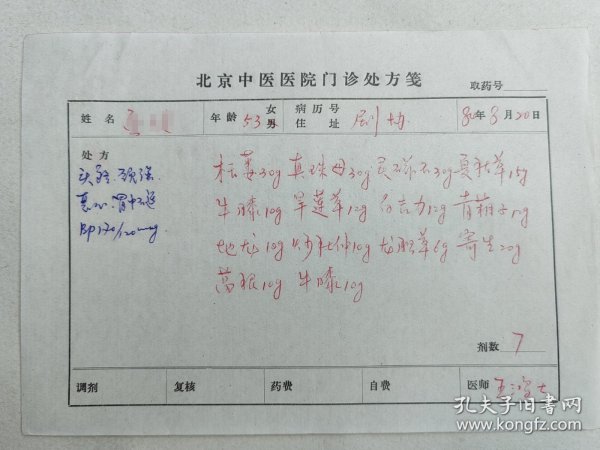 北京中医医院门诊处方笺
取药号
姓名 年龄 53 女 男 病历号 住址 剧协 80年8月20日
处方
头痛.颈强.
恶心.胃中不适
BP170/120mmg
枟蒌30g 真珠母30g 灵磁石30g 夏枯草15g
牛膝10g 旱莲草12g 12g 青葙子10g
地龙10g 炒杜仲10g 龙胆草6g 寄生20g
葛根10g 牛膝10g
剂数 7
调剂 复核 药费 自费 医师 王
孔夫子旧书网
www.kongfz.com